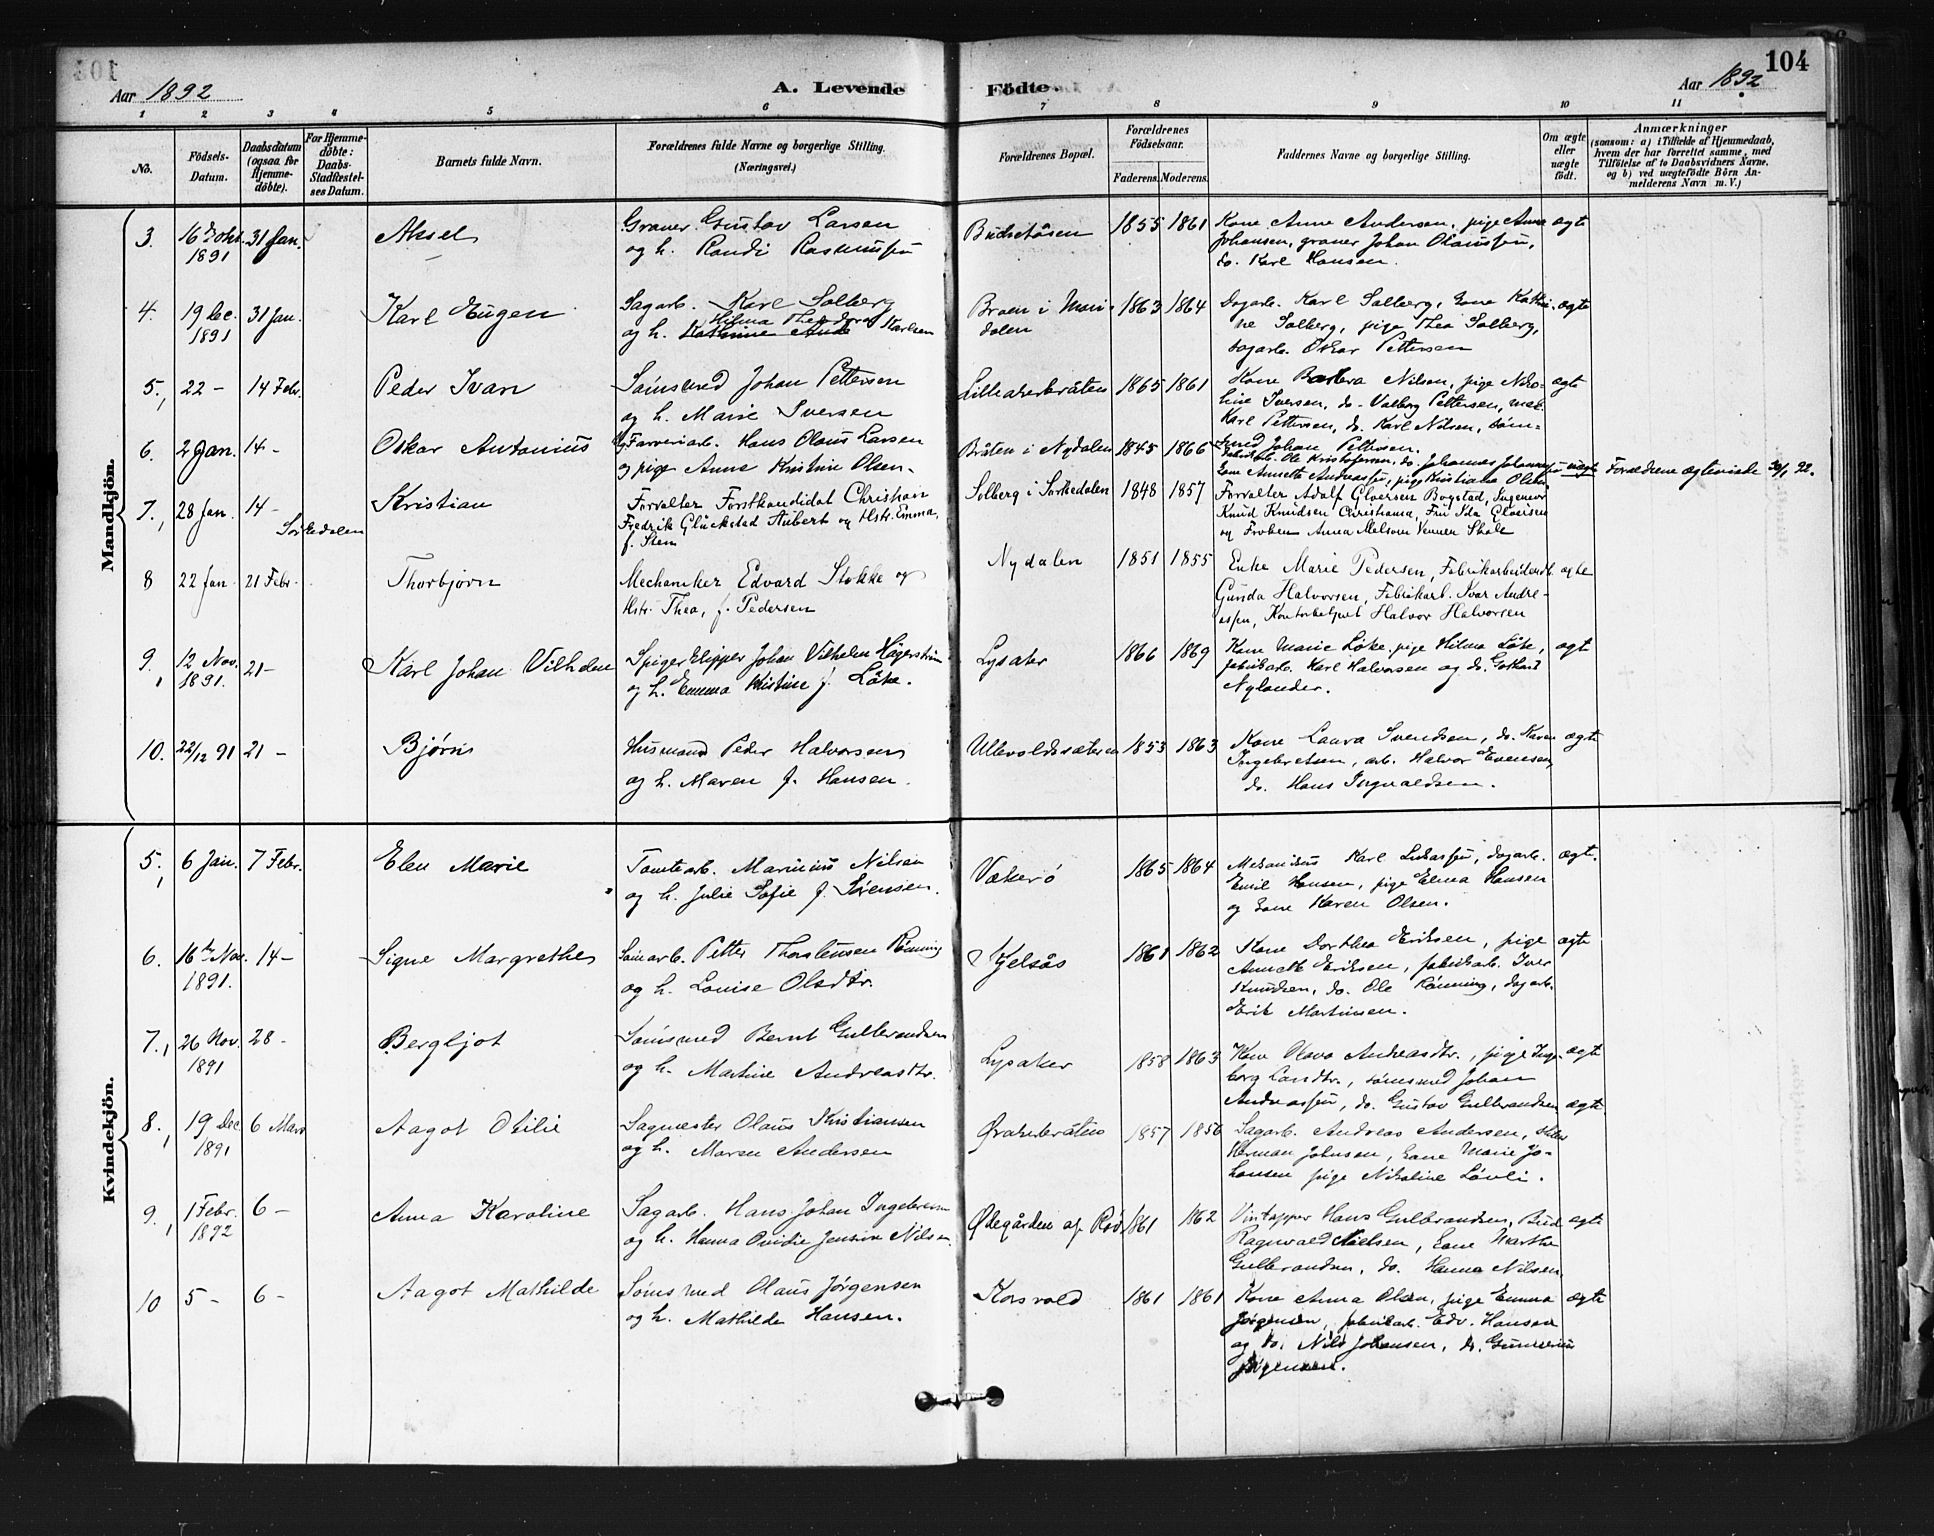 104
Aar 1892
A. Levende
Födte.
Aar 1892
1 2 3 4 5 6 7 8 9 10 11
No.
Födsels-
Datum.
Daabsdatum
(ogsaa for
Hjemme-
döbte).
For Hjemme-
döbte:
Daabs-
Stadfæstel-
ses Datum.
Barnets fulde Navn.
Forældrenes fulde Navne og borgerlige Stilling.
(Næringsvei.)
Forældrenes Bopæl.
Forældrenes
Födselsaar.
Faderens. Moderens.
Faddernes Navne og borgerlige Stilling.
Om ægte
eller
uægte
födt.
Anmærkninger
(saasom: a) i Tilfælde af Hjemmedaab,
hvem der har forrettet samme, med
Tilföielse af to Daabsvidners Navne,
og b) ved uægtefödte Börn An-
melderens Navn m. V.)
Mandkjön.
3. 16de Okt. 1891 31 Jan. Aksel
Graver Gustav Larsen
og h. Randi Rasmussen
1855 1861
Kone Anne Andersen, pige Anna
Johansen, graver Johan Olaussen,
do. Karl Hansen.
ægte
4. 19 Dec. 1891 31 Jan. Karl Eugen
Sagarb. Karl Solberg
Hilma Theodora
og h. Karlsen
Braen i Mari-
dalen
1863 1864
Dagarb. Karl Solberg, Kone Kathri-
ne Solberg, pige Thea Solberg,
dagarb. Oskar Pettersen
ægte
5. 22 - 14 Febr. Peder Ivan
Sømsmed Johan Pettersen
og h. Marie Iversen
Lilleakerbråten
1865 1861
Kone Barbra Nilsen, pige Niko-
line Iversen, do. Valborg Pettersen,
Karl Pettersen, do. Karl Nilsen, søm-
smed Johan Pettersen.
ægte
6. 2 Jan. 14 - Oskar Antonius
Farveriarb. Hans Olaus Larsen
og pige Anne Kristine Olsen.
Bråten i Nydalen
1845 1866
Ole Kristofersen, do. Johannes Johannessen
Kone Annette Andreassen, pige Kristiane Olsen
uægte
Forældrene ægteviede
7. 28 Jan. 14 - Sørkedalen Kristian
Forvalter Forstkandidat Christian
Fredrik Glückstad Aubert og Hstr. Emma,
f. Steen
Solberg i Sørkedalen
1848 1857
Forvalter Adolf Gløersen Bogstad, Ingeniør
Knud Knudsen Christiania, Fru Ida Gløersen
og Frøken Anna
8 22 Jan. 21 Febr. Thorbjørn
Mechaniker Edvard Stokke og
Hstr. Thea, f. Pedersen
Nydalen
1851 1855
Enke Marie Pedersen, Fabrikarbeidersk.
Gunda Halvorsen, Fabrikarb. Ivar Andre-
assen, Halvor Halvorsen
ægte
9. 12 Nov. 1891. 21 - Karl Johan Vilhelm
Spigerklipper Johan Vilhelm Hägerström
og h. Emma Kristine f. Löke.
Lysaker
1866 1869
Kone Marie Løke, pige Hilma Løke,
fabrikarb. Karl Halvorsen og do. Gothard
Nylander.
ægte
10. 22/12 91 21 - Bjørn
Husmand Peder Halvorsen
og h. Maren f. Hansen.
Ullevoldsæteren
1853 1863
Kone Laura Svendsen, do. Karen
Ingebretsen, arb. Halvor Evensen,
do. Hans Ingvaldsen.
ægte
Kvindekjön.
5. 6 Jan. 7 Febr. Elen Marie
Tomtearb. Marinius Nilsen
og h. Julie Sofie f. Sørensen.
Vækerö
1865 1864
Karl Lukassen, dagarb.
Emil Hansen, pige Elma Hansen
og Kone Karen Olsen.
ægt.
6. 16de Nov. 1891. 14 - Signe Margrethe
Sømarb. Petter Thorstensen Rønning
og h. Louise Olsdtr.
Kjelsås
1861 1862
Kone Dorthea Eriksen, pige
Annette Eriksen, fabrikarb. Iver
Knudsen, do. Ole Rønning, dagarb.
Erik Martinsen.
ægte
7. 26 Nov. 1891 28 - Bergljot
Sømsmed Bernt Gulbrandsen
og h. Martine Andreasdtr.
Lysaker
1858 1863
Kone Olava Andreasdtr., pige Inge-
borg Larsdtr., sømsmed Johan
Andreassen, do. Gustav Gulbrandsen
ægte
8. 19 Dec. 1891 6 Mars Aagot Otilie
Sagmester Olaus Kristiansen
og h. Maren Andersen
Øvakerbråten
1857 1856
Sagarb. Andreas Andersen,
Herman Johnsen, Kone Marie Jo-
hansen pige Nikoline Løvli.
ægte
9. 1 Febr. 1892 6 - Anna Karoline
Sagarb. Hans Johan Ingebretsen
og h. Hanna Ovidie Jensine Nilsen.
Ødegården af Røa
1861 1862
Vintapper Hans Gulbrandsen, Bud
Ragnvald Nielsen, Kone Marthe
Gulbrandsen, do. Hanna Nilsen.
ægte
10 5 - 6 - Aagot Mathilde
Sømsmed Olaus Jørgensen
og h. Mathilde Hansen.
Korsvold
1861 1861
Kone Anna Olsen, pige Emma
Jørgensen, fabrikarb. Edv. Hansen
og do. Nils Johansen, do. Gunnerius
Jørgensen.
ægte